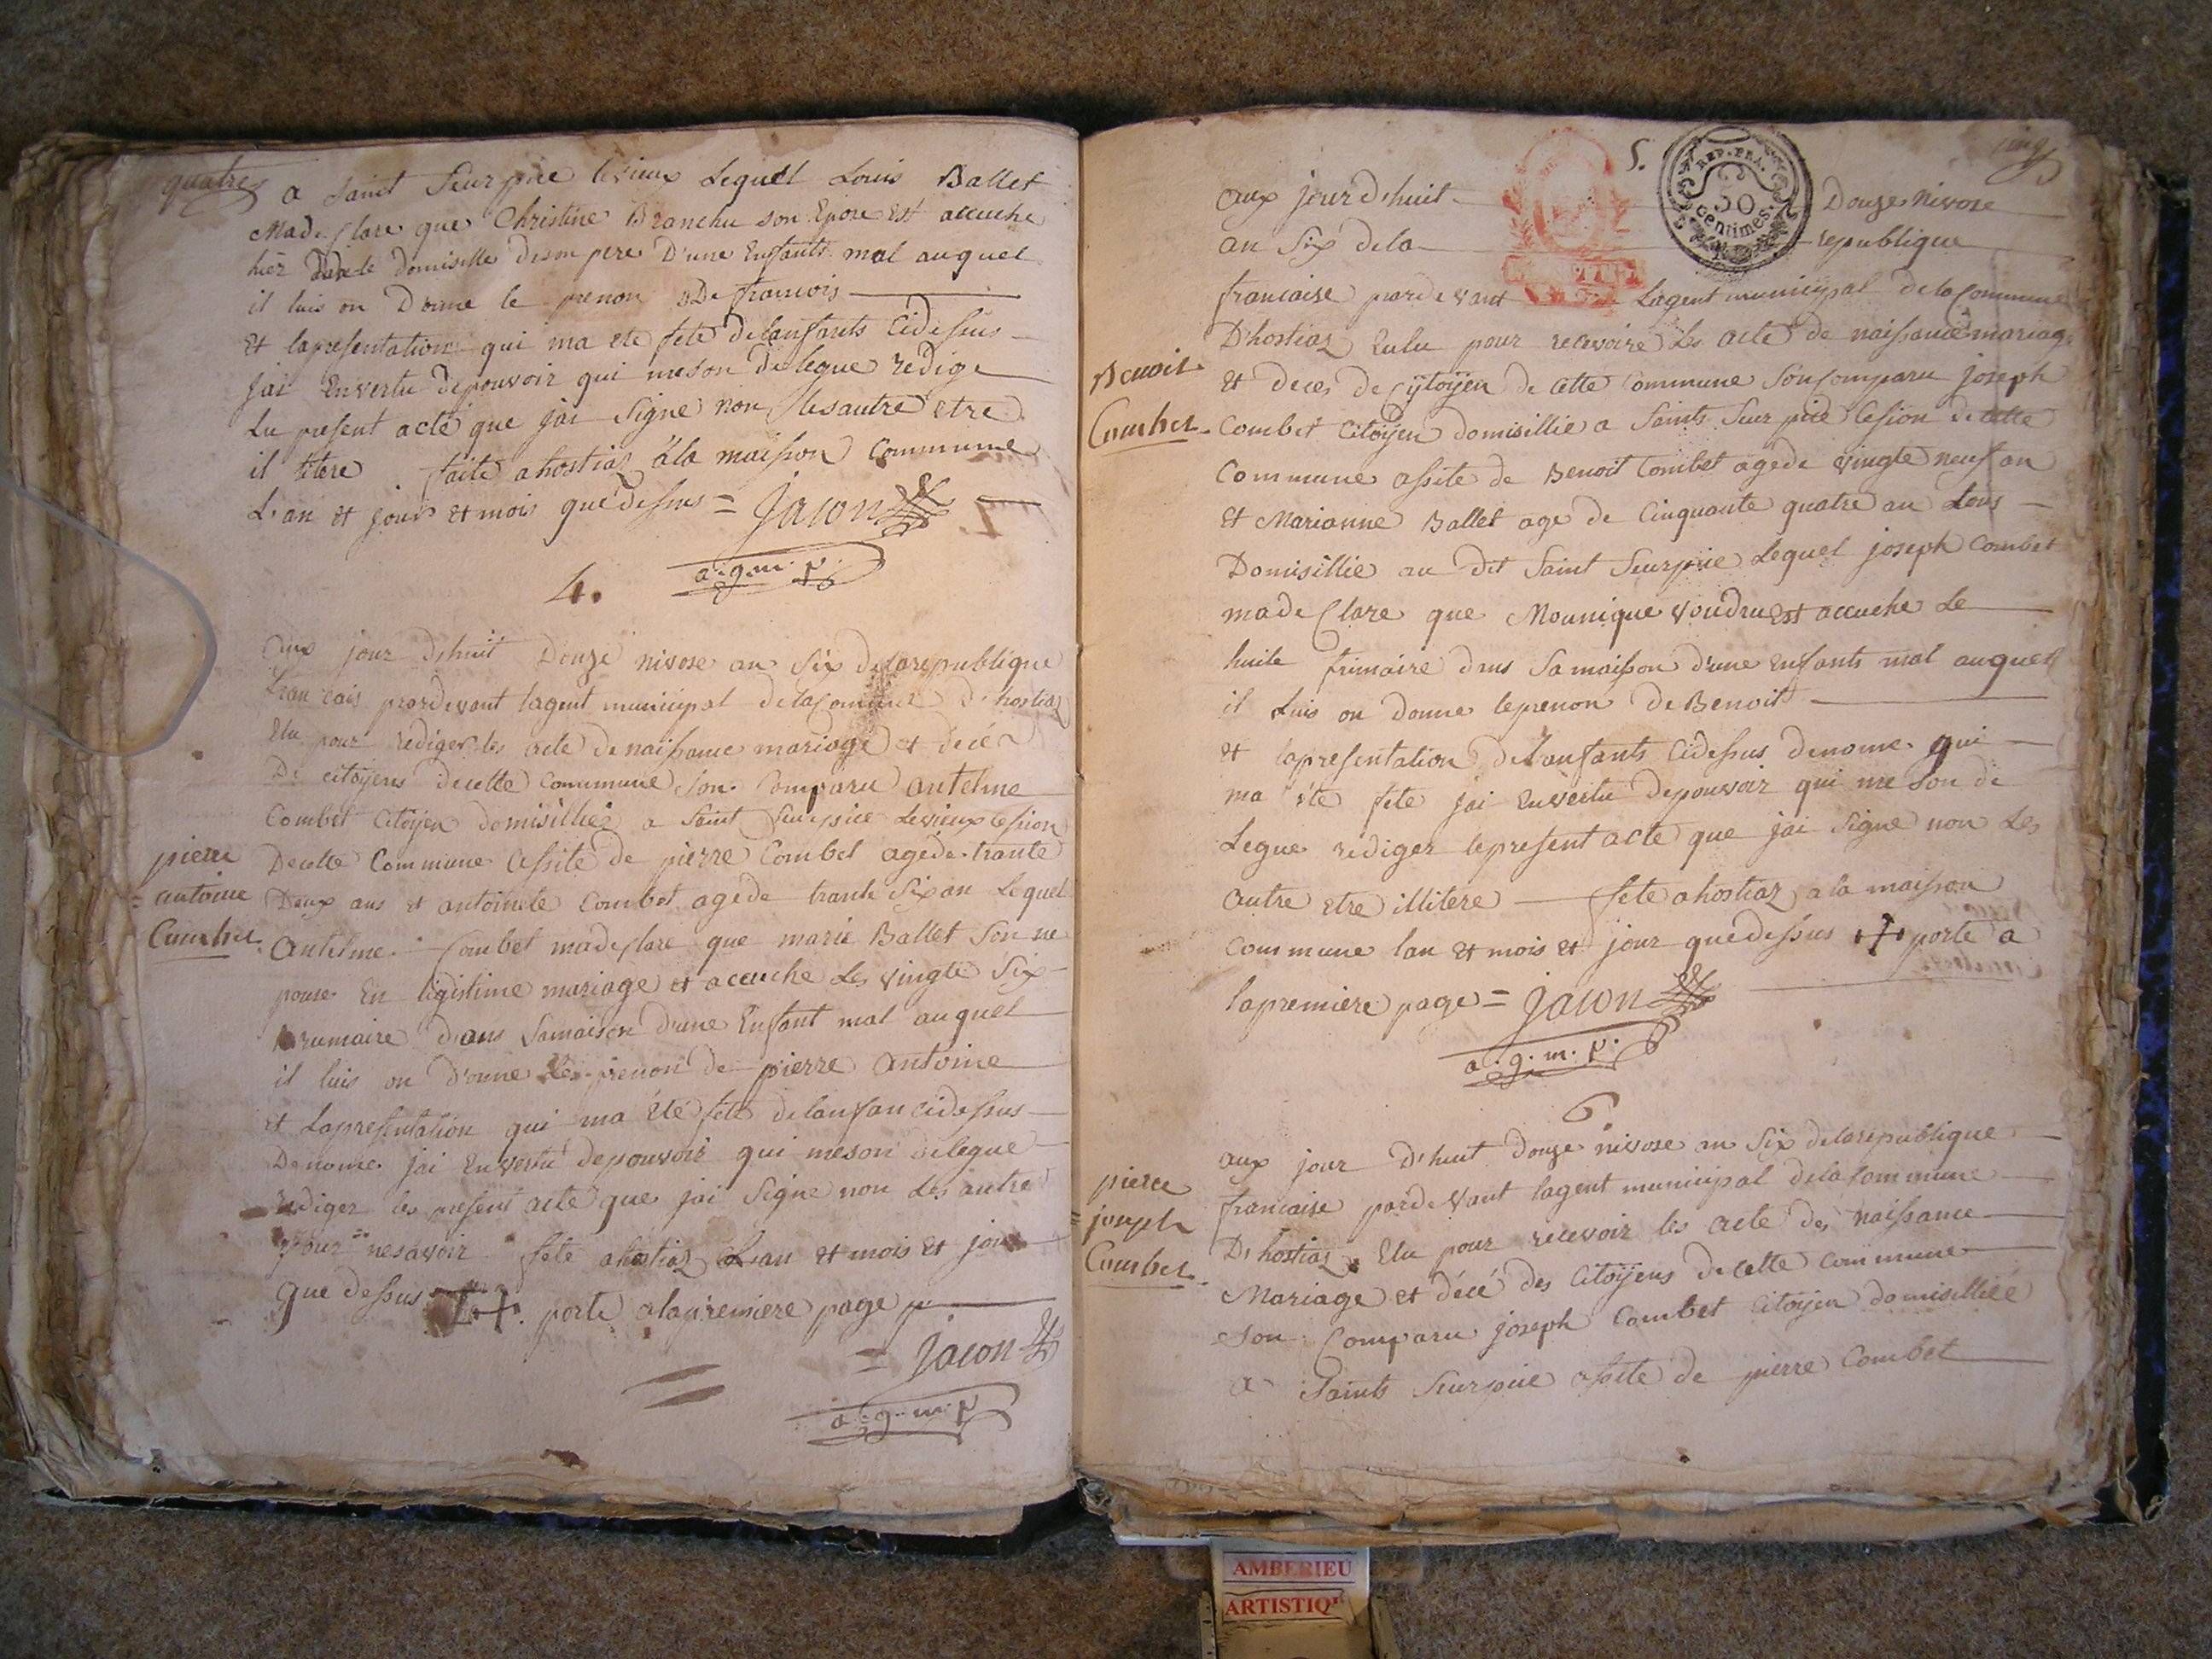 quatre
a saint Seurpie levieux Lequel Louis Ballet
Made Clare que Christine Branchu son Epose Est accuche
hier dans le domiselle deson pere D'une Enfants mal auquel
il luis on Donne le prenon De francois
Et lapresentation qui ma ete fete delanfants Cidesus
jai Envertu depouvoir qui meson delegue redige
Lu present acte que jai Signe non les autre etre
il litere faite a hostiaz a la maison Commune
L'an et jour et mois quedesus = jacon
a.g.m.p.
4.
Aux jour dhuit Douze nivose an Six delarepublique
francais pardevant lagent municipal delaComune d'hostiaz
Elu pour rediger les acte denaissance mariage et décé
De citoyens decette Commune Son Comparu antelme
Combet Citoyen domisillié a Saint Seurpie Levieux cesion
Decette Commune assite de pierre Combet agéde trante
Deux ans et antoinete Combet agéde trante six an Lequel
Antelme Combet madeclare que marie Ballet Son ne
pouse En ligistime mariage et accuche Les vingte Six
brumaire dans Samaison d'une Enfant mal auquel
il luis on d'onne Le prenon de pierre Antoine
et Lapresentation qui ma été fete delanfan cidessus
Denome jai Envertu depouvoir qui meson delegue
rediger les present acte que jai Signe non Les autre
pour nesavoir fete a hostiaz Lan et mois et jour
que dessus porte alapremiere page
= jacon
a.g.m.p
pierre
antoine
Combet
5.
cinq
REP. FRA.
50
centimes.
Aux jour d'huit Douze Nivose
an Six dela republique
francaise pardevant Lagent municipal delaCommune
D'hostiaz Eulu pour recevoire Les acte de naissance mariage
et deces de Cytoÿen de Cette Commune Son Comparu joseph
Combet Citoyen domisillie a Saints Seurpie Cesion de cette
Commune assite de Benoit Combet agede vingte neuf an
et Marianne Ballet age de Cinquante quatre an Lous
Domisillie au Dit Saint Seurpie Lequel joseph Combet
made Clare que Mounique voudru Est accuche Le
huite frimaire dans Samaison d'une Enfants mal auquel
il Luis on donne leprenon De Benoit
et lapresentation delanfants Cidessus denome qui
ma été fete jai Envertu depouvoir qui me son de
Legue rediger lepresent acte que jai Signe non Les
autre etre illitere fete a hostiaz a la maison
Commune lan et mois et jour quedessus porte a
lapremiere page = jacon
a.g.m.p.
Benoit
Combet
6
aux jour D'huit Douze nivose an Six delarepublique
francaise pardevant lagent municipal delaCommune
D'hostiaz Elu pour recevoir les acte de naissance
Mariage et décé des Citoÿens decette Commune
Son Comparu joseph Combet Citoÿen domisilliéé
a Saints Seurpie assite de pierre Combet
pierre
joseph
Combet
AMBERIEU
ARTISTIQ